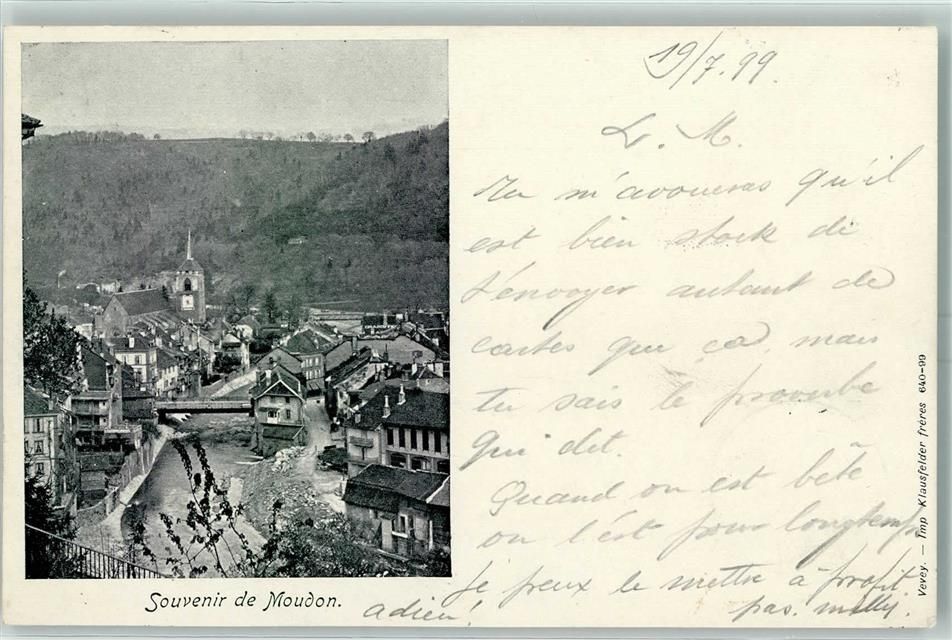 19/7.99.
L. M.
Tu m'avoueras qu'il
est bien stock de
t'envoyer autant de
cartes que ça, mais
tu sais le proverbe
qui dit.
Quand on est bête
on l'est pour longtemps
je peux le mettre à profit.
adieu! pas.
Souvenir de Moudon.
Vevey. — Imp. Klausfelder frères 640-99